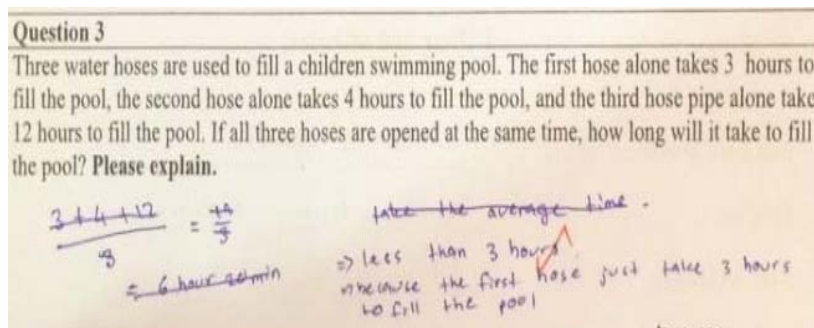 Question 3
Three water hoses are used to fill a children swimming pool. The first hose alone takes 3 hours to
fill the pool, the second hose alone takes 4 hours to fill the pool, and the third hose pipe alone take
12 hours to fill the pool. If all three hoses are opened at the same time, how long will it take to fill
the pool? Please explain.
3+4+12
3
=
take the average time.
= 6 hour
=> less than 3 hours
because the first hose just take 3 hours
to fill the pool